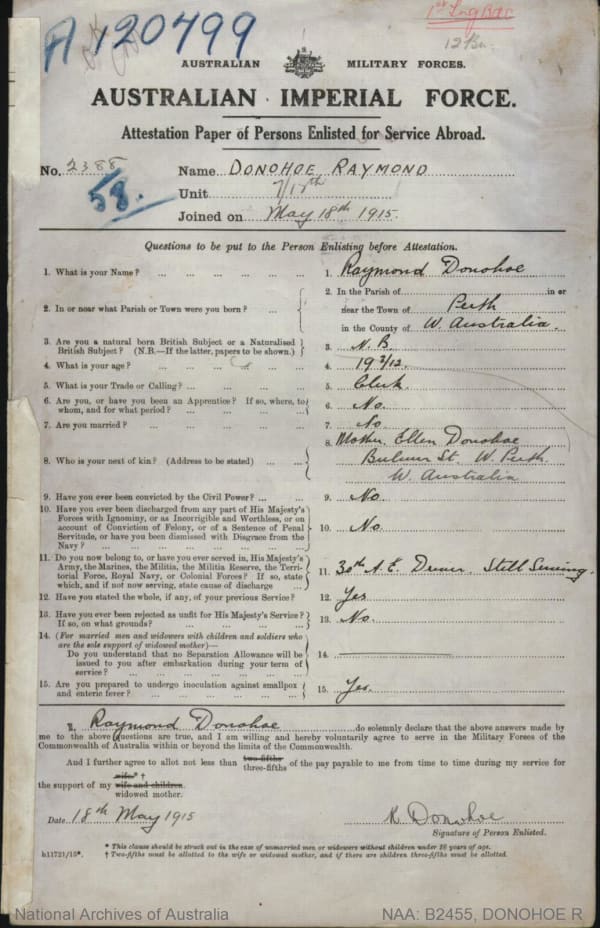 A 120499
12 Bn.
AUSTRALIAN MILITARY FORCES.
AUSTRALIAN IMPERIAL FORCE.
Attestation Paper of Persons Enlisted for Service Abroad.
No. 2388 Name DONOHOE RAYMOND
58. Unit 7/12th
Joined on May 18th 1915.
Questions to be put to the Person Enlisting before Attestation.
1. What is your Name? ... 1. Raymond Donohoe
2. In or near what Parish or Town were you born? ... 2. In the Parish of in or
near the Town of Perth
in the County of W. Australia.
3. Are you a natural born British Subject or a Naturalised
British Subject? (N.B.—If the latter, papers to be shown.) 3. N. B.
4. What is your age? ... 4. 19 2/12.
5. What is your Trade or Calling? ... 5. Clerk.
6. Are you, or have you been an Apprentice? If so, where, to
whom, and for what period? ... 6. No.
7. Are you married? ... 7. No
8. Who is your next of kin? (Address to be stated) ... 8. Mother. Ellen Donohoe
Bulwer St. W. Perth.
W. Australia
9. Have you ever been convicted by the Civil Power? ... 9. No.
10. Have you ever been discharged from any part of His Majesty's
Forces with Ignominy, or as Incorrigible and Worthless, or on
account of Conviction of Felony, or of a Sentence of Penal
Servitude, or have you been Dismissed with Disgrace from the
Navy? ... 10. No.
11. Do you now belong to, or have you ever served in, His Majesty's
Army, the Marines, the Militia, the Militia Reserve, the Terri-
torial Force, Royal Navy, or Colonial Forces? If so, state
which, and if not now serving, state cause of discharge ... 11. 30th A.E. Driver. Still Serving.
12. Have you stated the whole, if any, of your previous Service? 12. Yes
13. Have you ever been rejected as unfit for His Majesty's Service?
If so, on what grounds? ... 13. No.
14. (For married men and widowers with children and soldiers who
are the sole support of widowed mother)—
Do you understand that no Separation Allowance will be
issued to you after embarkation during your term of
service? ... 14.
15. Are you prepared to undergo inoculation against smallpox
and enteric fever? ... 15. Yes.
I, Raymond Donohoe do solemnly declare that the above answers made by
me to the above questions are true, and I am willing and hereby voluntarily agree to serve in the Military Forces of the
Commonwealth of Australia within or beyond the limits of the Commonwealth.
And I further agree to allot not less than two-fifths
three-fifths of the pay payable to me from time to time during my service for
wife* †
the support of my wife and children.
widowed mother.
Date 18th May 1915 R. Donohoe
Signature of Person Enlisted.
* This clause should be struck out in the case of unmarried men or widowers without children under 18 years of age.
h11721/15*. † Two-fifths must be allotted to the wife or widowed mother, and if there are children three-fifths must be allotted.
National Archives of Australia NAA: B2455, DONOHOE R